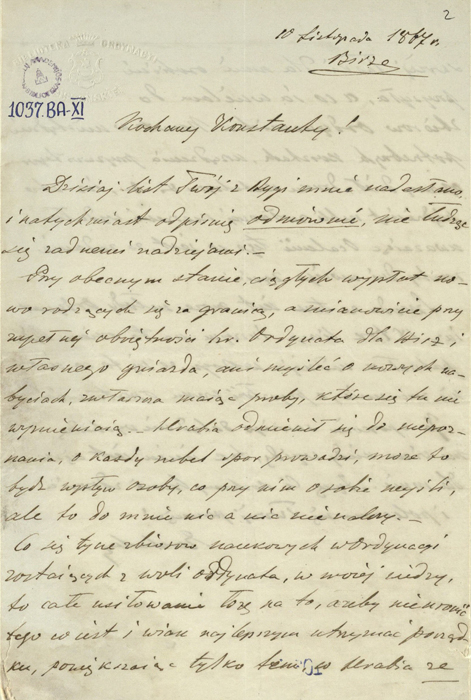 2
10 Listopada 1867 r.
Birże
1037.BA-XI
Kochany Konstanty!
Dzisiaj list Twój z Rygi mnie nadesłano,
i natychmiast odpisuję odmównie, nie łudząc
się żadnemi nadziejami.-
Przy obecnym stanie, ciągłych wypłat no-
wo rodzących się za granicą, a mianowicie przy
zupełnej obojętności hr. Ordynata dla Birż i
własnego gniazda, ani myśleć o nowych na-
byciach, zwłaszcza mając próby, które się tu nie
wymieniają. Hrabia odmienił się do niepoz-
nania, o każdy rubel spór prowadzi, może to
być wpływ osoby, co przy nim o sobie myśli,
ale to do mnie nic a nic nie należy.-
Co się tycze zbiorów naukowych w Ordynacyi
zostających z woli Ordynata, w mojej wiedzy,
to całe usiłowanie łożę na to, ażeby nie uronić
tego co jest i w jak najlepszym utrzymać porząd-
ku, powiększając tylko tem, co Hrabia ze